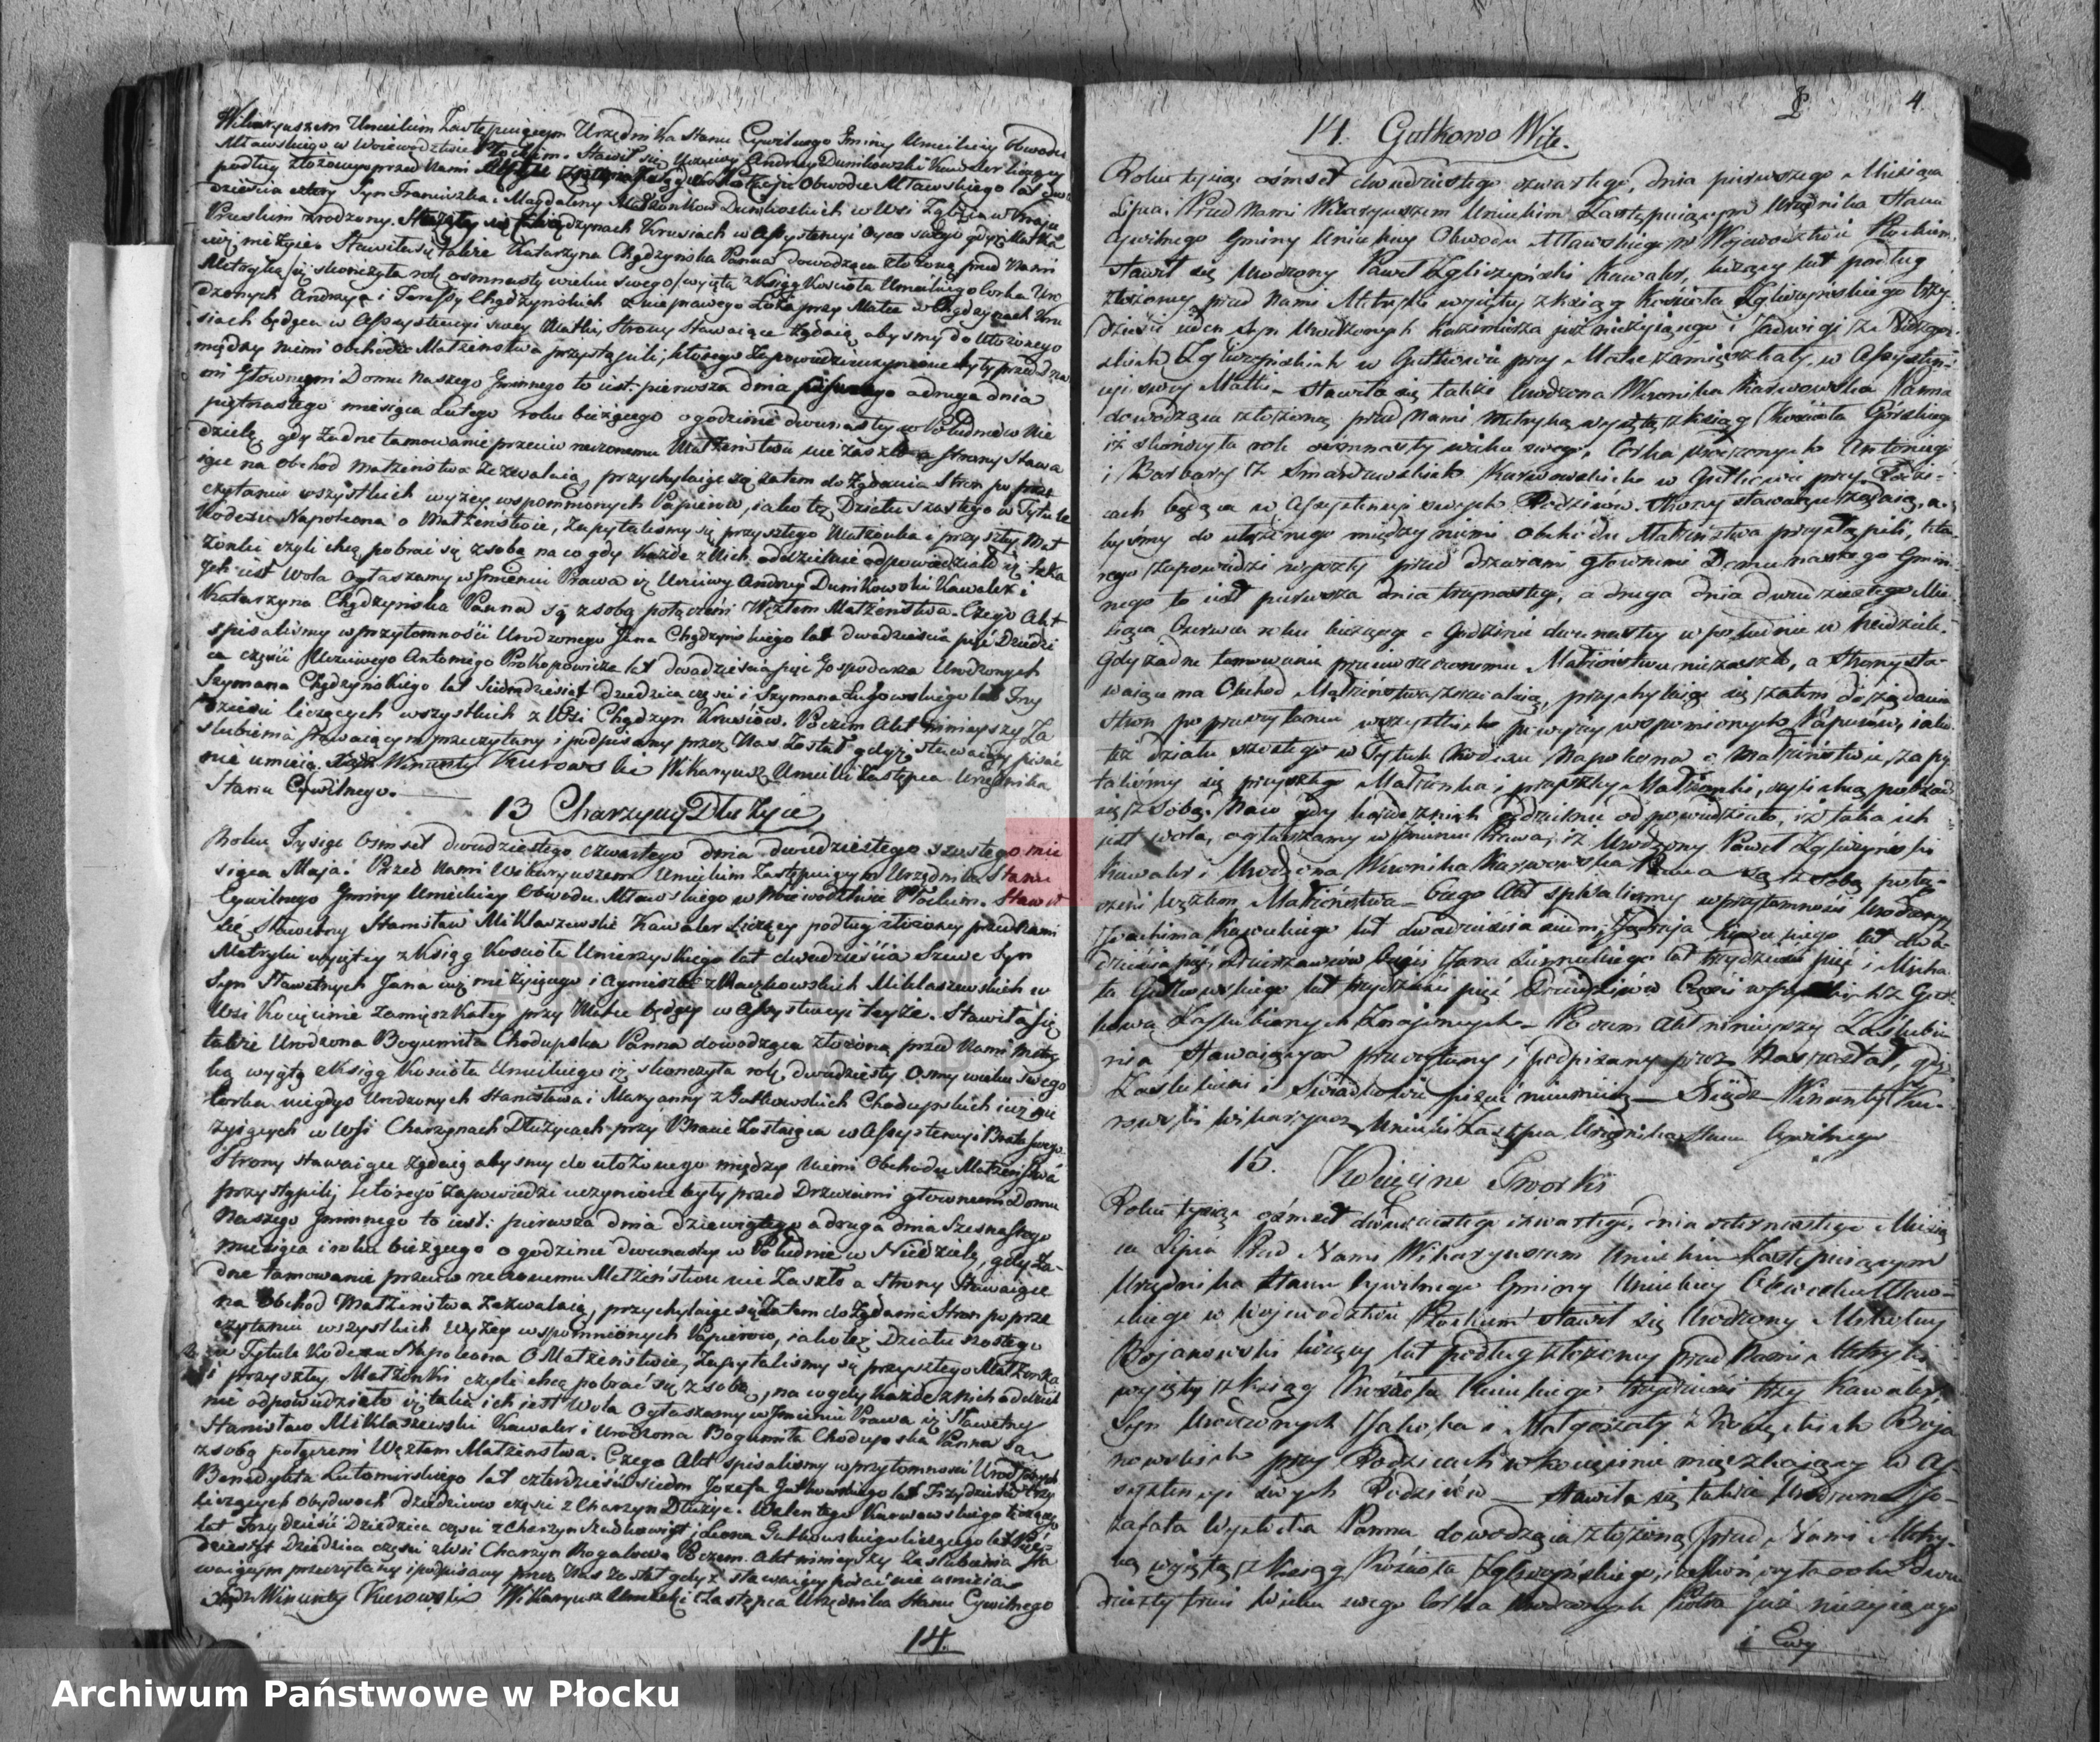 Wikaryuszem Unieckim Zastępuiącym Urzędnika Stanu Cywilnego Gminy Unieckiey Obwodu
Mławskiego w Woiewodztwie Płockim. Stawił się Uczciwy Andrzey Dunikowski Kawaler liczący
podług złożoney przed Nami Obwodu Mławskiego lat dwa
dzieścia cztery Syn Franciszka i Magdaleny Małżonkow Dunikoskich w Wsi
Pruskim zrodzony. Chądzynach Krusiach w Assystencyi Oyca swego gdyż Matka
iuż nieżyie. Stawiła się także Katarzyna Chądzyńska Panna dowodząca złożoną przed Nami
Metryką iż skończyła rok osmnasty wieku swego wyiętą z Ksiąg Kościoła Unieckiego Corka Uro
dzonych Andrzeia i Teressy Chądzyńskich z nieprawego Łoża przy Matce w Chądzynach Kru
siach będąca w Assystencyi swey Matki, Strony Stawaiące żądaią abysmy do ułożonego
między niemi obchodu Małżenstwa przystąpili; ktorego Zapowiedzi uczynione były przed Drzwia
mi głownemi Domu Naszego Gminnego to iest: pierwsza dnia a druga dnia
piętnastego miesiąca Lutego roku bieżącego o godzinie dwunastey w Południe w Nie
dzielę, gdy żadne tamowanie przeciw rzeczonemu Małżeństwu nie zaszło a strony Stawa
iące na Obchod Małżeństwa zezwalaią, przychylaiąc się zatem do Żądania Stron po prze
czytaniu wszystkich wyżey wspomnionych Papierow, iako też Działu szostego w Tytule
Kodexu Napoleona o Małżeństwie, Zapytalismy się przyszłego Małżonka i przyszłey Mał
żonki czyli chcą pobrać się z sobą na co gdy każde z Nich oddzielnie odpowiedziało iż taka
Jch iest Wola Ogłaszamy w Jmieniu Prawa iż Uczciwy Andrzey Dunikowski Kawaler i
Katarzyna Chądzyńska Panna są z sobą połączeni Węzłem Małżeństwa. Czego Akt
spisalismy w przytomności Urodzonego Jana Chądzyńskiego lat dwadzieścia pięć Dziedzi
ca części Uczciwego Antoniego Prokopowicza lat dwadzieścia pięć Gospodarza Urodzonych
Szymana Chądzyńskiego lat Siedmdziesiąt dziedzica części i Szymana Ługowskiego lat Trzy
dzieści liczących wszystkich z Wsi Chądzyn Krusiow. Poczem Akt ninieyszy Za
slubienia stawaiącym przeczytany i podpisany przez Nas został gdyż stawaiący pisać
nie umieią. Xiądz Wincenty Kurowski Wikaryusz Uniecki Zastępca Urzędnika
Stanu Cywilnego.
13 Charzyny Dłużyce
Roku Tysiąc Osmset dwudziestego czwartego dnia dwudziestego szostego mie
siąca Maja. Przed Nami Wikaryuszem Unieckim Zastępuiącym Urzędnika Stanu
Cywilnego Gminy Unieckiey Obwodu Mławskiego w Woiewodztwie Płockim. Stawił
się Sławetny Stanisław Miklaszewski Kawaler liczący podług złożoney przed Nami
Metryki wyiętey z Ksiąg Kościoła Unieckiego lat dwadzieścia Syn
Syn Sławetnych Jana iuż nieżyjącego i Agnieszki z Miklaszewskich w
Wsi Kocięcinie zamięszkałey przy Matce będący w Assystencyi teyże. Stawiła się
także Urodzona Bogumiła Chodupska Panna dowodząca złożoną przed Nami Metry
ką wyiętą z Ksiąg Kościoła Unieckiego iż skonczyła rok dwudziesty Osmy wieku swego
Corka niegdys Urodzonych Stanisława i Maryanny z Gutkowskich Chodupskich iuż nie
żyiących w Wsi Charzynach Dłużycach przy Bracie Zostaiąca w Assystencyi Brata swego
Strony stawaiące żądaią abysmy do ułożonego między niemi Obchodu Małżenstwa
przystąpili, ktorego Zapowiedzi uczynione były przed Drzwiami głownemi Domu
Naszego Gminnego to iest: pierwsza dnia dziewiątego a druga dnia Szesnastego
miesiąca i roku bieżącego o godzinie dwunastey w Południe w Niedzielę, gdy ża-
dne tamowanie przeciw rzeczonemu Małżeństwu nie Zaszło a Strony Stawaiące
na Obchod Małżeństwa Zezwalaią, przychylaiąc się Zatem do Żądania Stron po prze
czytaniu wszystkich wyżey wspomnionych Papierow, iako też Działu szostego
w Tytule Kodexu Napoleona O Małżeństwie, Zapytalismy się przyszłego Małżonka
i przyszłey Małżonki czyli chcą pobrać się z sobą, na co gdy każde z nich oddziel
nie odpowiedziało iż taka ich jest Wola Ogłaszamy w Jmieniu Prawa iż Sławetny
Stanisław Miklaszewski Kawaler i Urodzona Bogumiła Chodupska Panna są
z sobą połączeni Węzłem Małżenstwa. Czego Akt spisalismy w przytomności Urodzonych
Benedykta Lutomirskiego lat czterdzieści siedm Jozefa Gutkowskiego lat Trzydzieści trzy
liczących obydwoch dziedzicow części z Charzyn Dłużyc. Walentego Karwowskiego liczącego
lat Trzydzieści Dziedzica części z Charzyn i Leona Gutkowskiego liczącego lat Pięć-
dziesiąt Dziedzica części z Wsi Charzyn Rogalowa Poczem Akt ninieyszy Zaslubienia Sta
waiącym przeczytany i podpisany przez Nas został gdyż stawaiący pisać nie umieią
Xiądz Wincenty Kurowski Wikaryusz Uniecki Zastępca Urzędnika Stanu Cywilnego
14.
4
14. Gutkowo Wity.
Roku tysiąc osmset dwudziestego czwartego, dnia pierwszego Miesiąca
Lipca. Przed Nami Wikaryuszem Unieckim Zastępuiącym Urzędnika Stanu
Cywilnego Gminy Unieckiey Obwodu Mławskiego w Woiewodztwie Płockim,
stawił się Urodzony Paweł Zgliczyński Kawaler, liczący lat podług
złożoney przed Nami Metryki wyiętey z ksiąg Kościoła Zgliczyńskiego trzy-
dzieści ieden Syn Urodzonych Kazimierza już nieżyiącego i Jadwigi z
skich Zgliczyńskich w Gutkowie przy Matce zamięszkały, w Assysten-
cyi swey Matki – Stawiła się także Urodzona Weronika Karwowska Panna
dowodząca złożoną przed Nami Metryką wyiętą z ksiąg Kościoła Górskiego
iż skończyła rok osmnasty wieku swego, Córka Urodzonych Antoniego
i Barbary z Karwowskich w Gutkowie przy Rodzi-
cach będąca w Assystencyi swych Rodziców. Strony stawaiące żądaią, a-
byśmy do ułożonego między niemi Obchodu Małżeństwa przystąpili, któ-
rego Zapowiedzi wyszły przed drzwiami głownemi Domu naszego Gmin-
nego to iest pierwsza dnia trzynastego, a druga dnia dwudziestego Mie-
siąca Czerwca roku bieżącego o Godzinie dwunastey w południe w Niedziele.
Gdy żadne tamowanie przeciw rzeczonemu Małżeństwu nie zaszło, a Strony sta-
waiące na Obchod Małżeństwa zezwalaią, przychylaiąc się zatem do żądania
Stron po przeczytaniu wszystkich powyżey wspomnionych Papierów, iako
też działu szostego w Tytule Kodexu Napoleona o Małżeństwie, zapy-
taliśmy się przyszłego Małżonka i przyszłey Małżonki, czyli chcą pobrać
się z sobą. Na co gdy każde z nich oddzielnie odpowiedziało, iż taka ich
iest wola, ogłaszamy w Jmieniu Prawa, iż Urodzony Paweł Zgliczyński
Kawaler i Urodzona Weronika Karwowska Panna są z sobą połą-
czeni węzłem Małżeństwa – Czego Akt spisaliśmy w przytomności Urodzonych
Joachima lat dwadzieścia siedm, lat dwa-
dzieścia pięć, Jana lat trzydzieści pięć i Micha
ła Gutkowskiego lat trzydzieści pięć Dziedziców Części z Gut-
kowa Zaslubionych Znajomych – Poczem Akt ninieyszy Zaślubie
nia Stawaiącym przeczytany i podpisany przez Nas został, gdyż
Zaślubieni i Świadkowie pisać nieumieią – Xiądz Wincenty Ku-
rowski Wikaryusz Uniecki Zastępca Urzędnika Stanu Cywilnego
15. Kocięcine Tworki
Roku tysiąc osmset dwudziestego czwartego, dnia czternastego Miesią
ca Lipca Przed Nami Wikaryuszem Unieckim Zastępuiącym
Urzędnika Stanu Cywilnego Gminy Unieckiey Obwodu Mław-
skiego w Wojewodztwie Płockim stawił się Urodzony Mikołay
Bojanowski liczący lat podług złożoney przed Nami Metryki
wyiętey z ksiąg Kościoła Unieckiego trzydzieści trzy Kawaler,
Syn Urodzonych Jakóba i Małgorzaty z Boja
nowskich przy Rodzicach w Kocięcinie mięszkaiący w As-
systencyi swych Rodziców – Stawiła się także Urodzona Jo-
zefata Panna dowodząca złożoną przed Nami Metry-
ką wyiętą z ksiąg Kościoła Zgliczyńskiego, iż skończyła rok dwu
dziesty trzeci wieku swego Córka Urodzonych Piotra już nieżyiącego
i Ewy
Archiwum Państwowe w Płocku